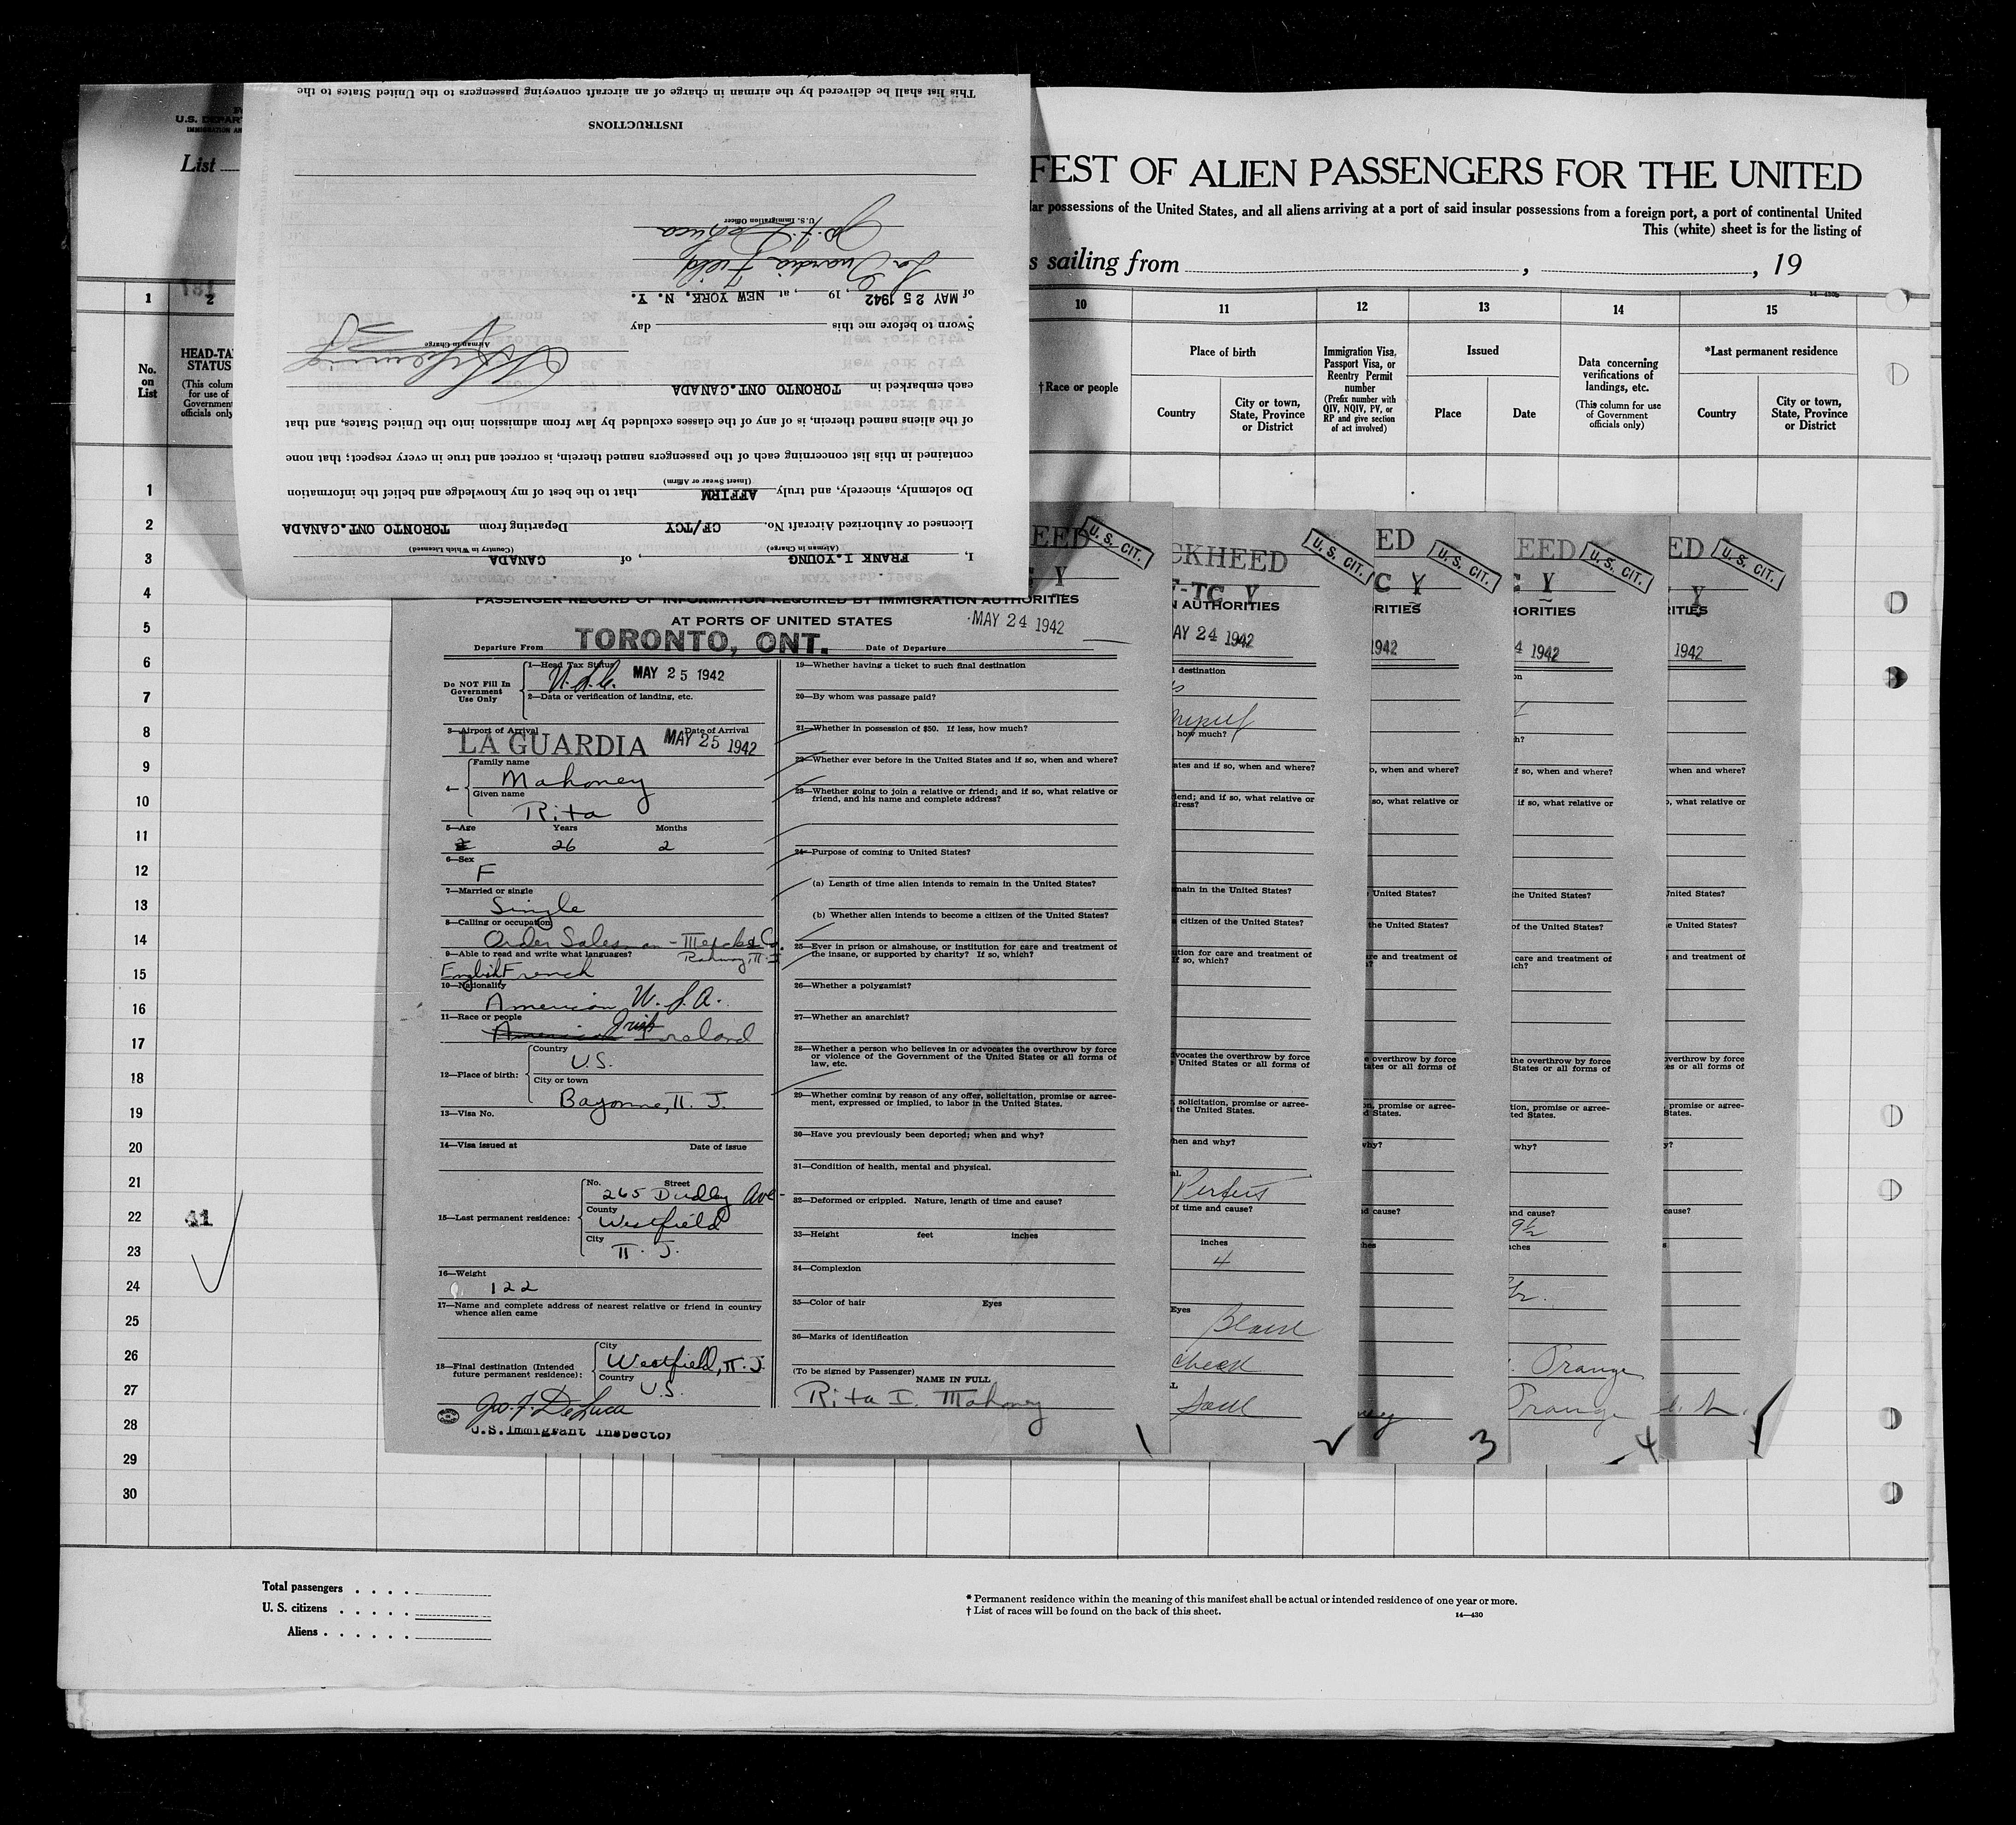 This list shall be delivered by the airman in charge of an aircraft conveying passengers to the United States to the
INSTRUCTIONS
U.S. Immigration Officer
Jo. F. DeLuca
La Guardia Field
of MAY 25 1942, 19 , at NEW YORK, N. Y.
Sworn to before me this day
Airman in Charge
each embarked in TORONTO ONT.CANADA
of the aliens named therein, is of any of the classes excluded by law from admission into the United States, and that
contained in this list concerning each of the passengers named therein, is correct and true in every respect; that none
(Insert Swear or Affirm)
Do solemnly, sincerely, and truly AFFIRM that to the best of my knowledge and belief the information
Licensed or Authorized Aircraft No. CF/TCY Departing from TORONTO ONT.CANADA
(Airman in Charge) (Country in Which Licensed)
I, FRANK I.YOUNG , of CANADA
U.S. DEPAR
IMMIGRATION AN
List
FEST OF ALIEN PASSENGERS FOR THE UNITED
lar possessions of the United States, and all aliens arriving at a port of said insular possessions from a foreign port, a port of continental United
This (white) sheet is for the listing of
s sailing from , , 19
1 2 10 11 12 13 14 15
No. on List
HEAD-TAX STATUS
(This colum for use of Government officials only
†Race or people
Place of birth
Country
City or town, State, Province or District
Immigration Visa, Passport Visa, or Reentry Permit number
(Prefix number with QIV, NQIV, PV, or RP and give section of act involved)
Issued
Place
Date
Data concerning verifications of landings, etc.
(This column for use of Government officials only)
*Last permanent residence
Country
City or town, State, Province or District
1
2
3
4
5
6
7
8
9
10
11
12
13
14
15
16
17
18
19
20
21
22
23
24
25
26
27
28
29
30
41
EED
U. S. CIT.
Y
PASSENGER RECORD OF INFORMATION REQUIRED BY IMMIGRATION AUTHORITIES
AT PORTS OF UNITED STATES
MAY 24 1942
Departure From TORONTO, ONT. Date of Departure
Do NOT Fill In Government Use Only
1—Head Tax Status
U.S.C. MAY 25 1942
2—Data or verification of landing, etc.
3—Airport of Arrival Date of Arrival
LA GUARDIA MAY 25 1942
4— Family name
Mahoney
Given name
Rita
5—Age Years Months
26 2
6—Sex
F
7—Married or single
Single
8—Calling or occupation
Order Salesman - Merck & Co.
Rahway, N. J.
9—Able to read and write what languages?
English French
10—Nationality
American U. S. A.
11—Race or people
American Irish Ireland
12—Place of birth:
Country
U.S.
City or town
Bayonne, N. J.
13—Visa No.
14—Visa issued at Date of issue
15—Last permanent residence:
No. Street
265 Dudley Ave
County
Westfield
City
N. J.
16—Weight
122
17—Name and complete address of nearest relative or friend in country whence alien came
18—Final destination (Intended future permanent residence):
City
Westfield, N. J.
Country
U.S.
Jo. F. DeLuca
U.S. Immigrant Inspector
19—Whether having a ticket to such final destination
20—By whom was passage paid?
21—Whether in possession of $50. If less, how much?
22—Whether ever before in the United States and if so, when and where?
23—Whether going to join a relative or friend; and if so, what relative or friend, and his name and complete address?
24—Purpose of coming to United States?
(a) Length of time alien intends to remain in the United States?
(b) Whether alien intends to become a citizen of the United States?
25—Ever in prison or almshouse, or institution for care and treatment of the insane, or supported by charity? If so, which?
26—Whether a polygamist?
27—Whether an anarchist?
28—Whether a person who believes in or advocates the overthrow by force or violence of the Government of the United States or all forms of law, etc.
29—Whether coming by reason of any offer, solicitation, promise or agreement, expressed or implied, to labor in the United States.
30—Have you previously been deported; when and why?
31—Condition of health, mental and physical.
32—Deformed or crippled. Nature, length of time and cause?
33—Height feet inches
34—Complexion
35—Color of hair Eyes
36—Marks of identification
(To be signed by Passenger)
NAME IN FULL
Rita I. Mahoney
1
CKHEED
U. S. CIT.
F-TC Y
N AUTHORITIES
MAY 24 1942
l destination
how much?
ates and if so, when and where?
iend; and if so, what relative or
dress?
main in the United States?
a citizen of the United States?
ution for care and treatment of
f so, which?
dvocates the overthrow by force
United States or all forms of
solicitation, promise or agree-
the United States.
hen and why?
al.
Perfect
of time and cause?
inches
4
Eyes
check
2
ED
U. S. CIT.
C Y
RITIES
1942
o, when and where?
so, what relative or
United States?
the United States?
re and treatment of
overthrow by force
tates or all forms of
on, promise or agree-
d States.
why?
d cause?
hes
3
EED
U. S. CIT.
Y
HORITIES
4 1942
on
h?
f so, when and where?
if so, what relative or
the United States?
of the United States?
care and treatment of
ich?
the overthrow by force
States or all forms of
tion, promise or agree-
ted States.
why?
and cause?
9½
nches
Orange
Orange
4
ED
U. S. CIT.
Y
RITIES
1942
when and where?
o, what relative or
United States?
e United States?
and treatment of
overthrow by force
es or all forms of
promise or agree-
States.
y?
cause?
s
Total passengers . . . .
U. S. citizens . . . . .
Aliens . . . . . .
* Permanent residence within the meaning of this manifest shall be actual or intended residence of one year or more.
† List of races will be found on the back of this sheet.
14—430